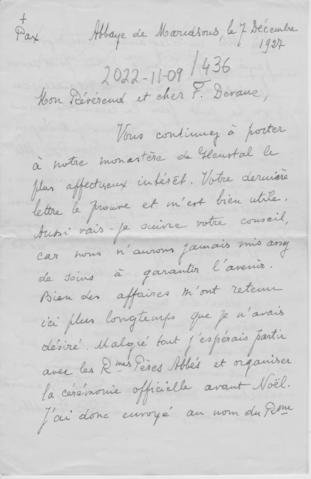 +
Pax
Abbaye de Maredsous, le 7 Décembre
1927
2022-11-09/436
Mon Révérend et cher F. Devane,
Vous continuez à porter
à notre monastère de Glenstal le
plus affectueux intérêt. Votre dernière
lettre le prouve et m'est bien utile.
Aussi vais-je suivre votre conseil,
car nous n'aurons jamais mis assez
de soins à garantir l'avenir.
Bien des affaires m'ont retenu
ici plus longtemps que je n'avais
désiré. Malgré tout j'espérais partir
avec les Rmes Pères Abbés et organiser
la cérémonie officielle avant Noël.
J'ai donc envoyé au nom du Rme